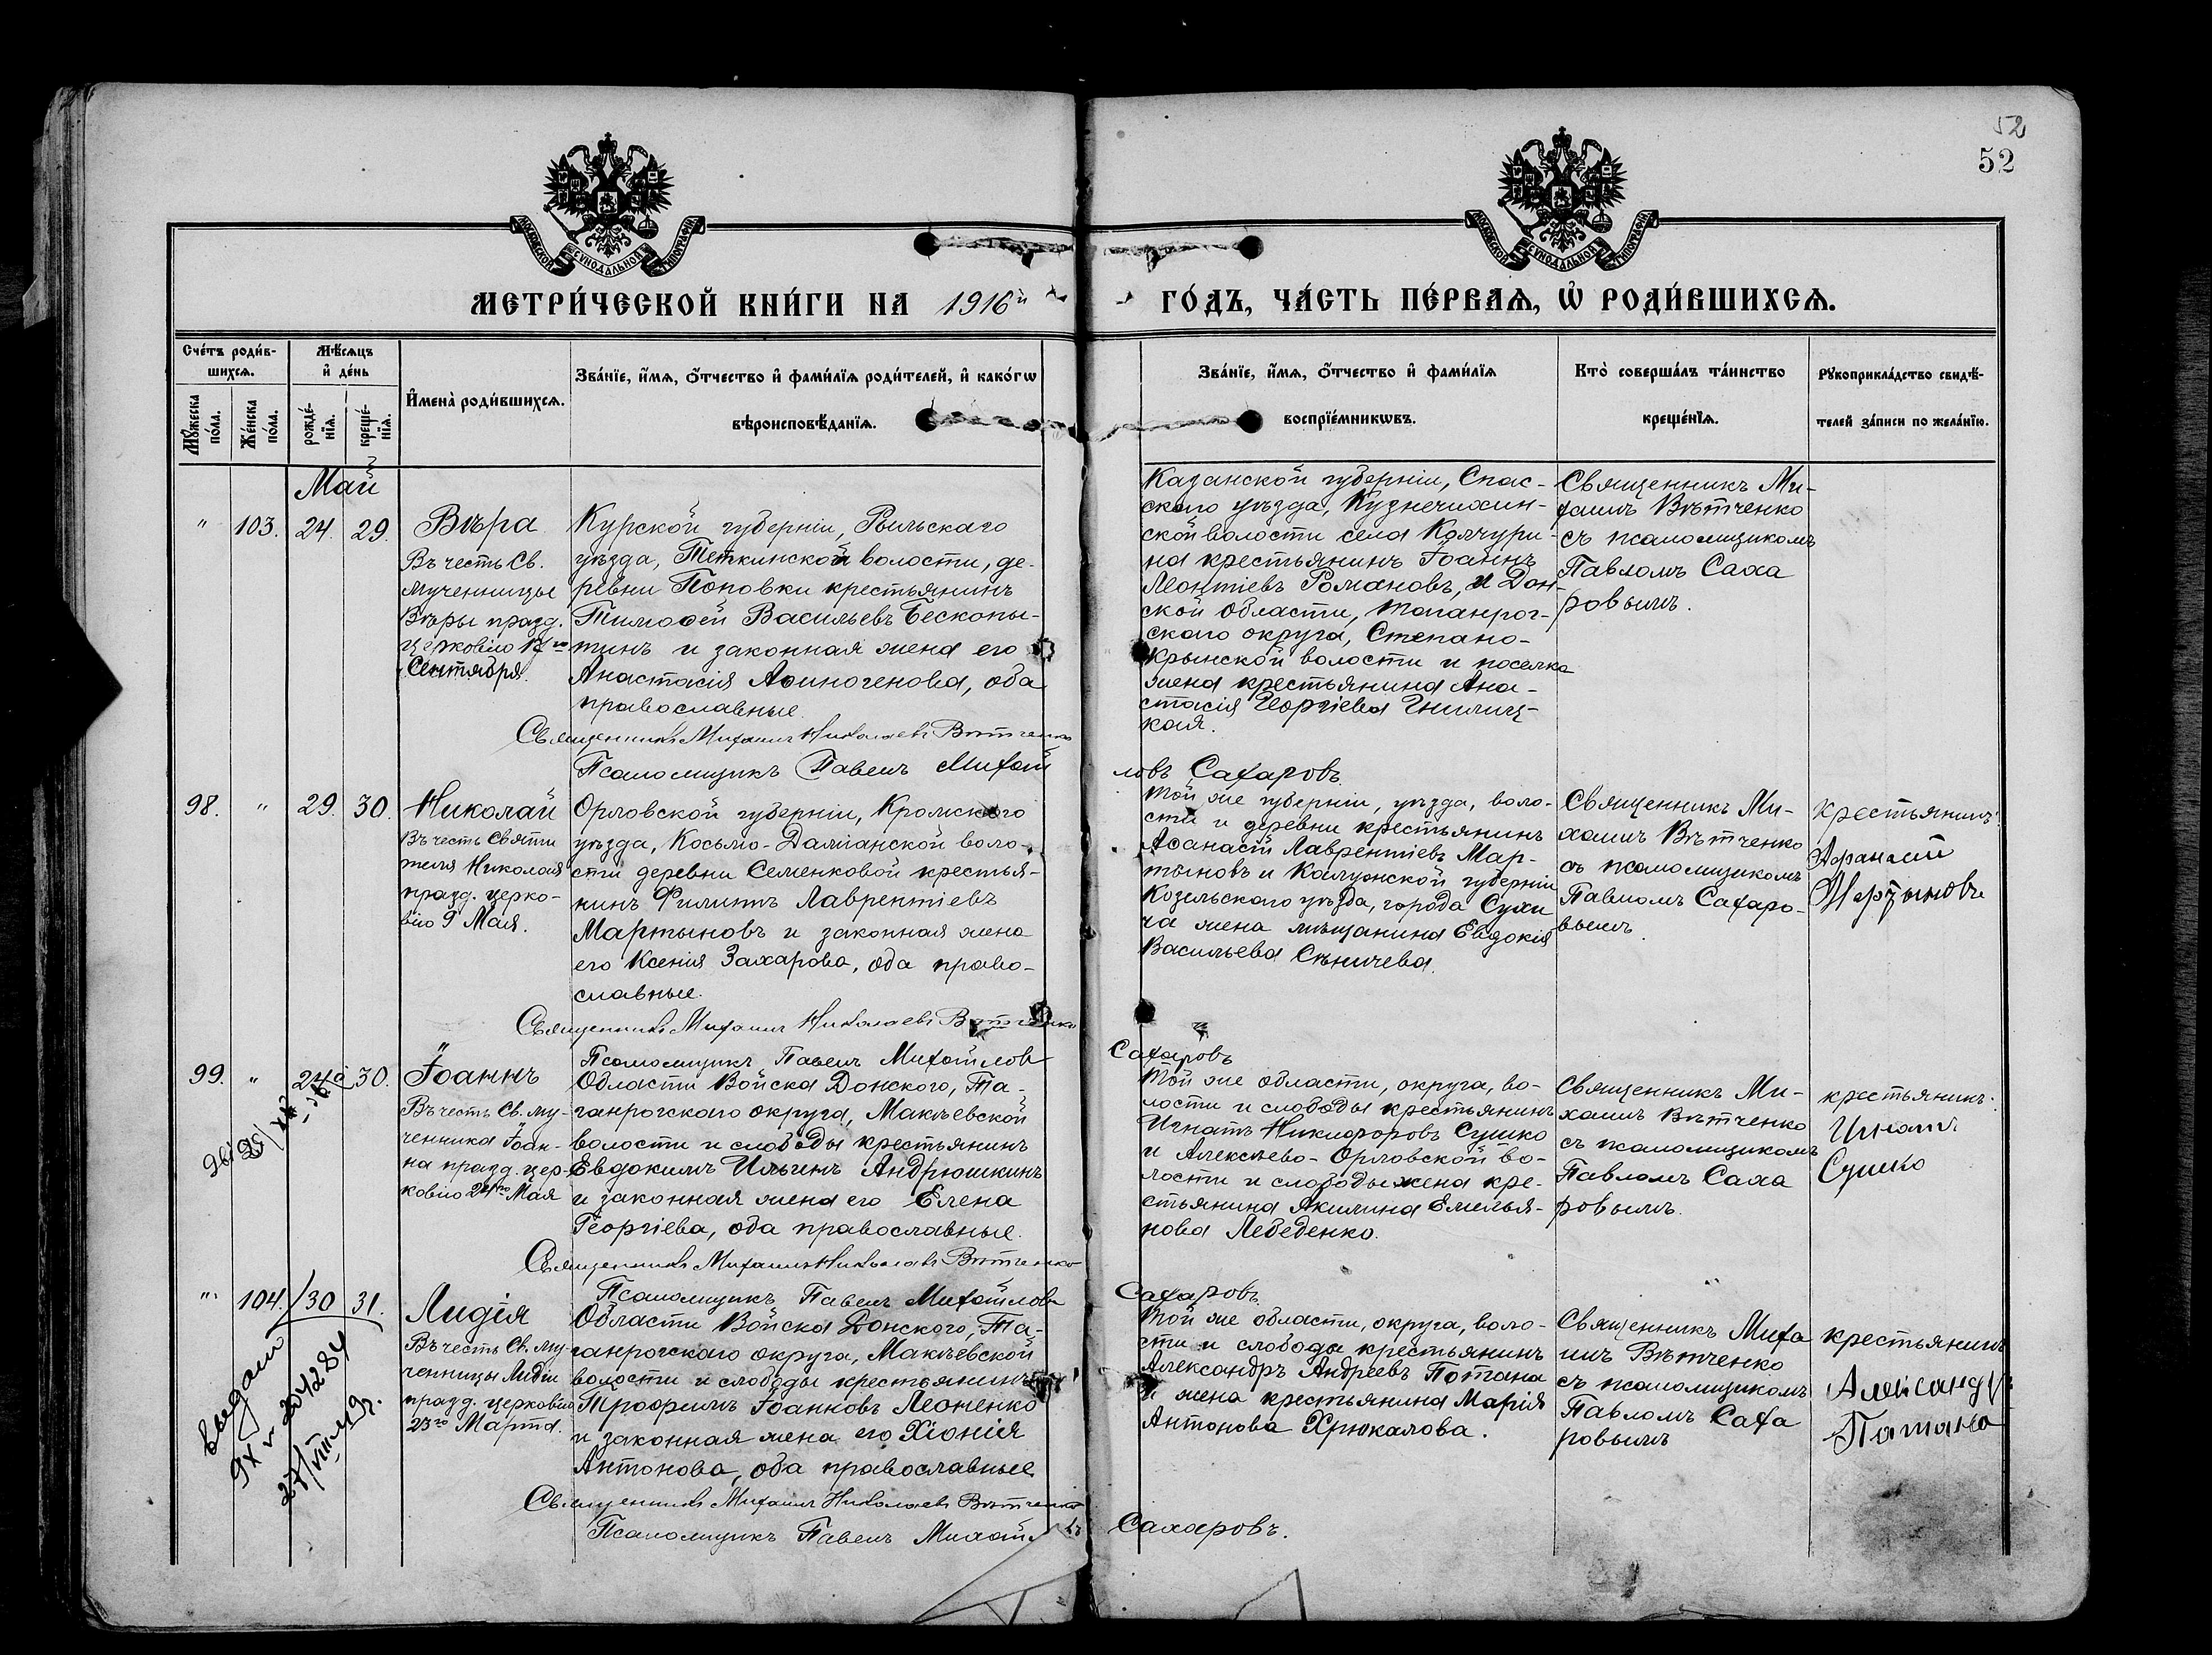 52
52
МОСКОВСКОЙ СУНОДАЛЬНОЙ ТИПОГРАФІИ
МОСКОВСКОЙ СУНОДАЛЬНОЙ ТИПОГРАФІИ
МЕТРИ́ЧЕСКОЙ КНИ́ГИ НА 1916й
ГО́ДЪ, ЧА́СТЬ ПЕ́РВАѦ, Ѡ҆ РОДИ́ВШИХСѦ.
Сче́тъ роди́в-
шихсѧ.
Мꙋ́жеска по́ла.
Же́нска по́ла.
Мѣ́сѧцъ
и҆ де́нь
рожде́-
нїѧ.
креще́-
нїѧ.
И҆мена̀ роди́вшихсѧ.
Зва́нїе, и҆́мѧ, ѻ҆́тчество и҆ фами́лїѧ роди́телей, и҆ како́гѡ
вѣроисповѣ́данїѧ.
Зва́нїе, и҆́мѧ, ѻ҆́тчество и҆ фами́лїѧ
воспрїе́мникѡвъ.
Кто̀ соверша́лъ та́инство
креще́нїѧ.
Рꙋкоприкла́дство свидѣ́-
телей за́писи по жела́нїю.
Май
" 103. 24. 29.
Вѣра
Въ честь Св.
мученницы
Вѣры празд.
церковію 17го
Сентября.
Курской губерніи, Рыльскаго
уѣзда, Теткинской волости, де-
ревни Поповки крестьянинъ
Тимоѳей Васильевъ Бескопы-
тинъ и законная жена его
Анастасія Аѳиногенова, оба
православные.
Священникъ Михаилъ Николаевъ Вѣтченко
Псаломщикъ Павелъ Михай
ловъ Сахаровъ.
Казанской губерніи, Спас-
скаго уѣзда, Кузнечихин-
ской волости села Колчури-
на крестьянинъ Іоаннъ
Леонтіевъ Романовъ, и Дон-
ской области, Таганрог-
скаго округа, Степано-
Крынской волости и поселка
жена крестьянина Ана-
стасія Георгіева Гнилиц-
кая.
Священникъ Ми-
хаилъ Вѣтченко
съ псаломщикомъ
Павломъ Саха
ровымъ.
98. " 29. 30.
Николай
Въ честь Святи
теля Николая
празд. церко-
вію 9 Мая.
Орловской губерніи, Кромскаго
уѣзда, Косьмо-Даміанской воло-
сти деревни Семенковой крестья-
нинъ Филиппъ Лаврентіевъ
Мартыновъ и законная жена
его Ксенія Захарова, оба право-
славные.
Священникъ Михаилъ Николаевъ Вѣтченко
Псаломщикъ Павелъ Михайловъ
Сахаровъ
Той же губерніи, уѣзда, воло-
сти и деревни крестьянинъ
Аѳанасій Лаврентіевъ Мар-
тыновъ и Калужской губерніи
Козельскаго уѣзда, города Сухи
ча жена мѣщанина Евдокія
Васильева Сѣничева.
Священникъ Ми-
хаилъ Вѣтченко
съ псаломщикомъ
Павломъ Сахаро-
вымъ.
крестьянинъ
Афанасий
Мартыновъ
99. " 24 30.
Іоаннъ
Въ честь Св. му-
ченника Іоан-
на празд. цер-
ковію 24го Мая
Области Войска Донского, Та-
ганрогскаго округа, Макѣевской
волости и слободы крестьянинъ
Евдокимъ Ильинъ Андрюшкинъ
и законная жена его Елена
Георгіева, оба православные.
Священникъ Михаилъ Николаевъ Вѣтченко
Псаломщикъ Павелъ Михайловъ
Сахаровъ.
Той же области, округа, во-
лости и слободы крестьянинъ
Игнатъ Никифоровъ Сушко
и Алексѣево-Орловской во-
лости и слободы жена кре-
стьянина Акилина Емелья-
нова Лебеденко.
Священникъ Ми-
хаилъ Вѣтченко
съ псаломщикомъ
Павломъ Саха
ровымъ.
крестьянинъ
Игнатъ
Сушко
" 104. 30 31.
Лидія
Въ честь Св. му-
ченницы Лидіи
празд. церковію
23го Марта.
выдано
204284
Области Войска Донского, Та-
ганрогскаго округа, Макѣевской
волости и слободы крестьянинъ
Трофимъ Іоанновъ Леоненко
и законная жена его Хіонія
Антонова, оба православные
Священникъ Михаилъ Николаевъ Вѣтченко
Псаломщикъ Павелъ Михайловъ
Сахаровъ.
Той же области, округа, воло-
сти и слободы крестьянинъ
Александръ Андреевъ Потана
и жена крестьянина Марія
Антонова Хрюкалова.
Священникъ Миха
илъ Вѣтченко
съ псаломщикомъ
Павломъ Саха
ровымъ
крестьянинъ
Александръ
Патана